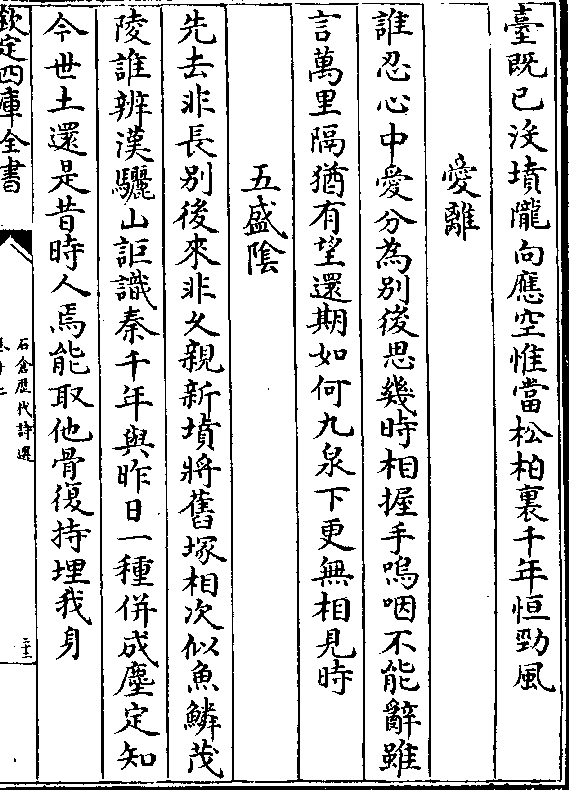 臺既已沒墳隴向應空惟當松柏裏千年恒勁風
愛離
誰忍心中愛分為別後思幾時相握手嗚咽不能辭雖
言萬里隔猶有望還期如何九泉下更無相見時
五盛陰
先去非長別後來非久親新墳將舊塚相次似魚鱗茂
陵誰辨漢驪山詎識秦千年與昨日一種併成塵定知
今世土還是昔時人焉能取他骨復持埋我身
欽定四庫全書
石倉歴代詩選